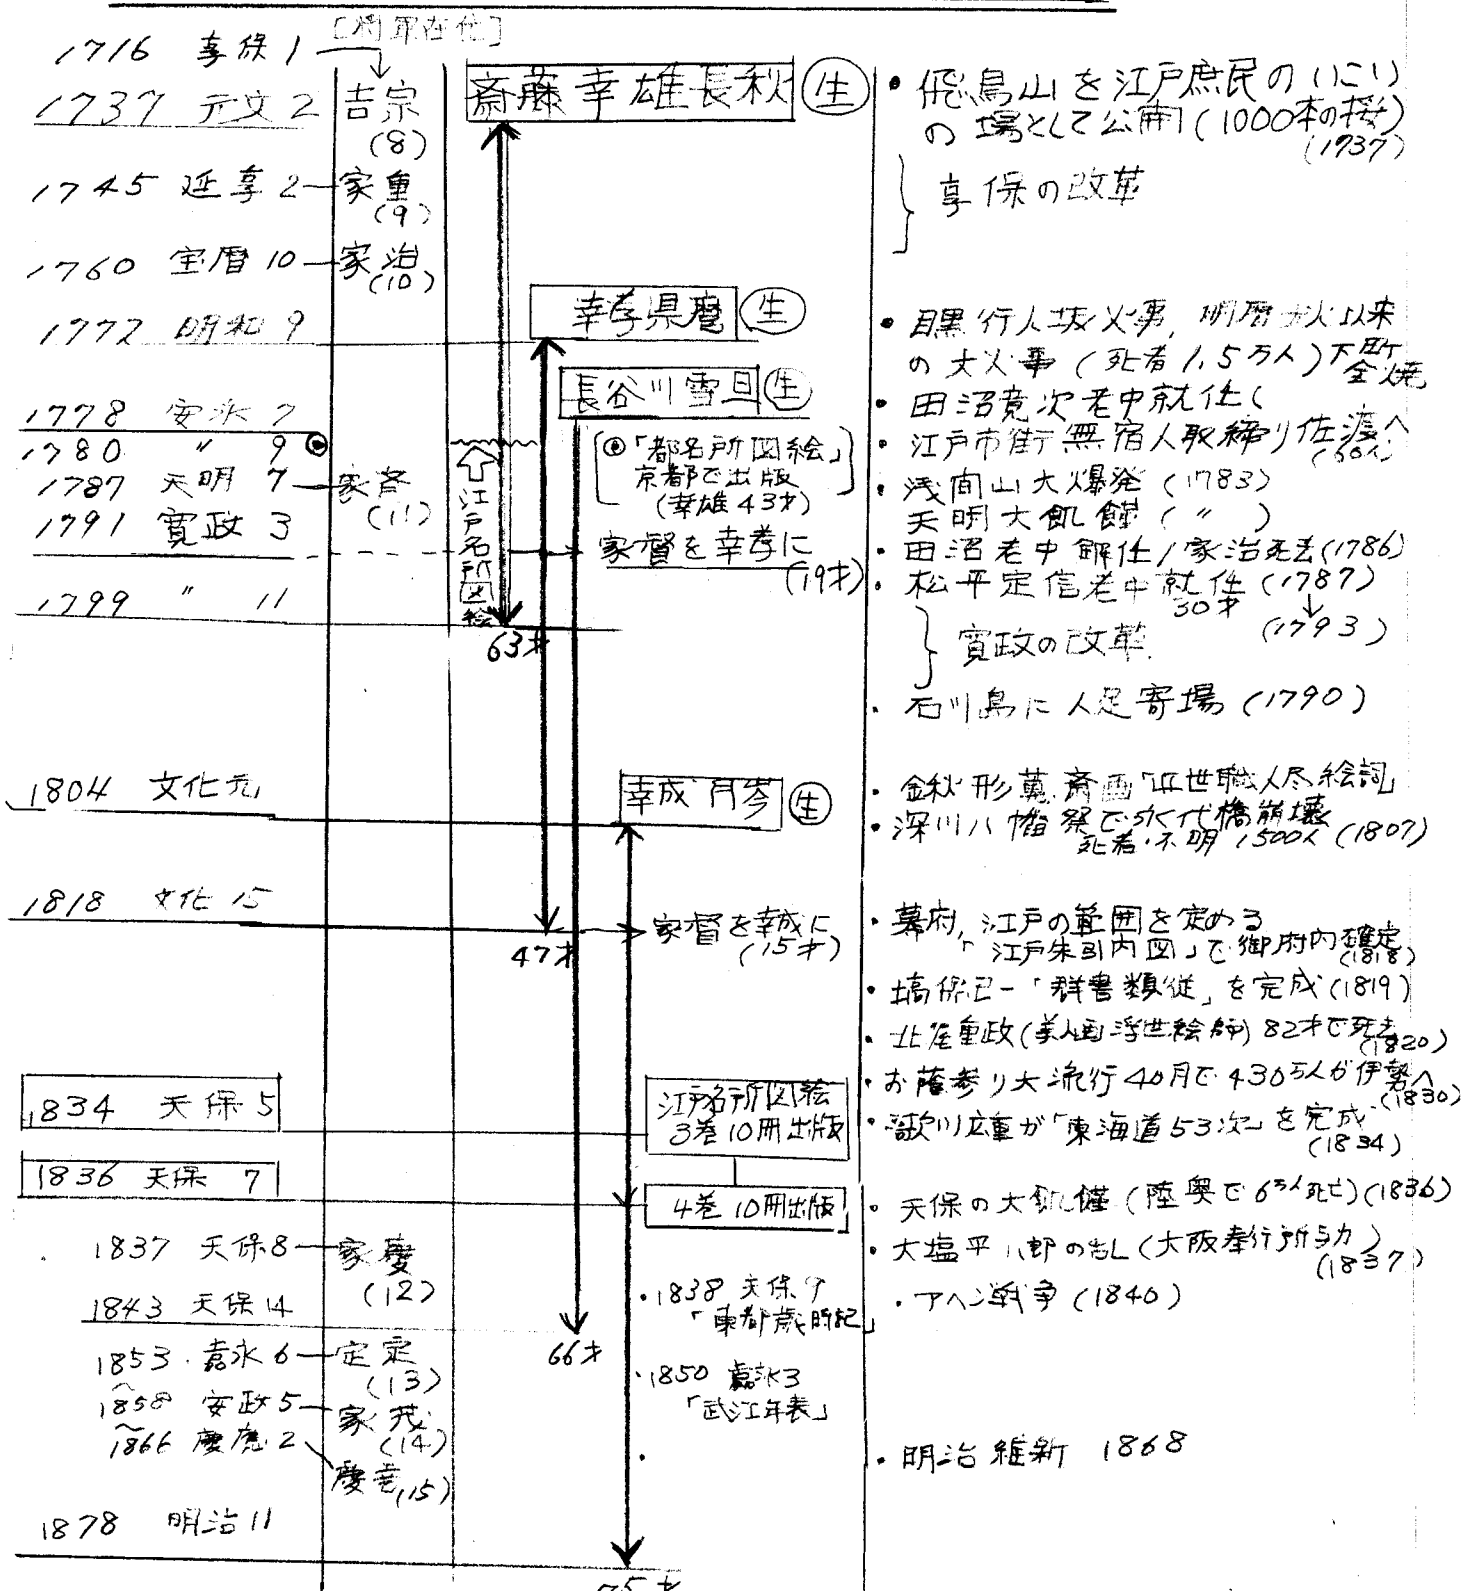 [将軍在位]
1716 享保1
1737 元文2
吉宗
(8)
1745 延享2 家重
(9)
1760 宝暦10 家治
(10)
1772 明和9
1778 安永7
1780 〃 9
1787 天明7 家斉
(11)
1791 寛政3
1799 〃 11
1804 文化元
1818 文化15
1834 天保5
1836 天保7
1837 天保8 家慶
(12)
1843 天保14
1853.嘉永6 定定
(13)
1858 安政5 家茂
(14)
1866 慶応2
慶喜
(15)
1878 明治11
斎藤幸雄長秋 生
幸孝県麿 生
長谷川雪旦 生
「都名所図絵」
京都で出版
(幸雄43才)
江戸名所図絵
家督を幸孝に
(19才)
63才
幸成 月岑 生
家督を幸成に
(15才)
47才
江戸名所図絵
3巻10冊出版
4巻10冊出版
・1838 天保9
「東都歳時記」
66才
・1850 嘉永3
「武江年表」
75才
・飛鳥山を江戸庶民のいこい
の場として公開(1000本の桜)
(1737)
享保の改革
・目黒行人坂火事,明暦大火以来
の大火事(死者1.5万人)下町
全焼
・田沼意次老中就任(
・江戸市街無宿人取締り佐渡へ
(60人)
・浅間山大爆発(1783)
天明大飢饉(〃)
・田沼老中解任/家治死去(1786)
・松平定信老中就任(1787)
30才
(1793)
寛政の改革
・石川島に人足寄場(1790)
・金秋形蕙斎画「近世職人尽絵詞」
・深川八幡祭で永代橋崩壊
死者・不明1500人(1807)
・幕府,江戸の範囲を定める
「江戸朱引内図」で御府内確定
(1818)
・塙保己一「群書類従」を完成(1819)
・北尾重政(美人画浮世絵師)82才で死去
(1820)
・お蔭参り大流行40月で430万人が伊勢へ
(1830)
・歌川広重が「東海道53次」を完成
(1834)
・天保の大飢饉(陸奥で6万人死亡)(1836)
・大塩平八郎の乱(大阪奉行所与力)
(1837)
・アヘン戦争(1840)
・明治維新 1868